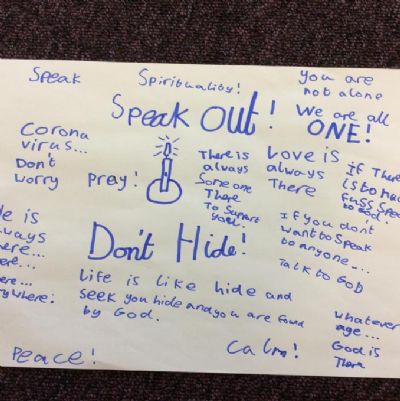 Speak
Spirituality!
you are
not alone
Speak Out!
We are all
ONE!
Corona
virus...
Don't
worry
pray!
There is
always
Someone
There
To Support
you.
Love is
always
There
if There
is to much
fuss speak
to God.
e is
ways
ere...
ere..
ere...
rywhere.
Don't Hide!
If you dont
want to speak
to anyone....
Talk to God
Life is like hide and
seek you hide and you are found
by God.
whatever
age...
God is
There
Peace!
calm!